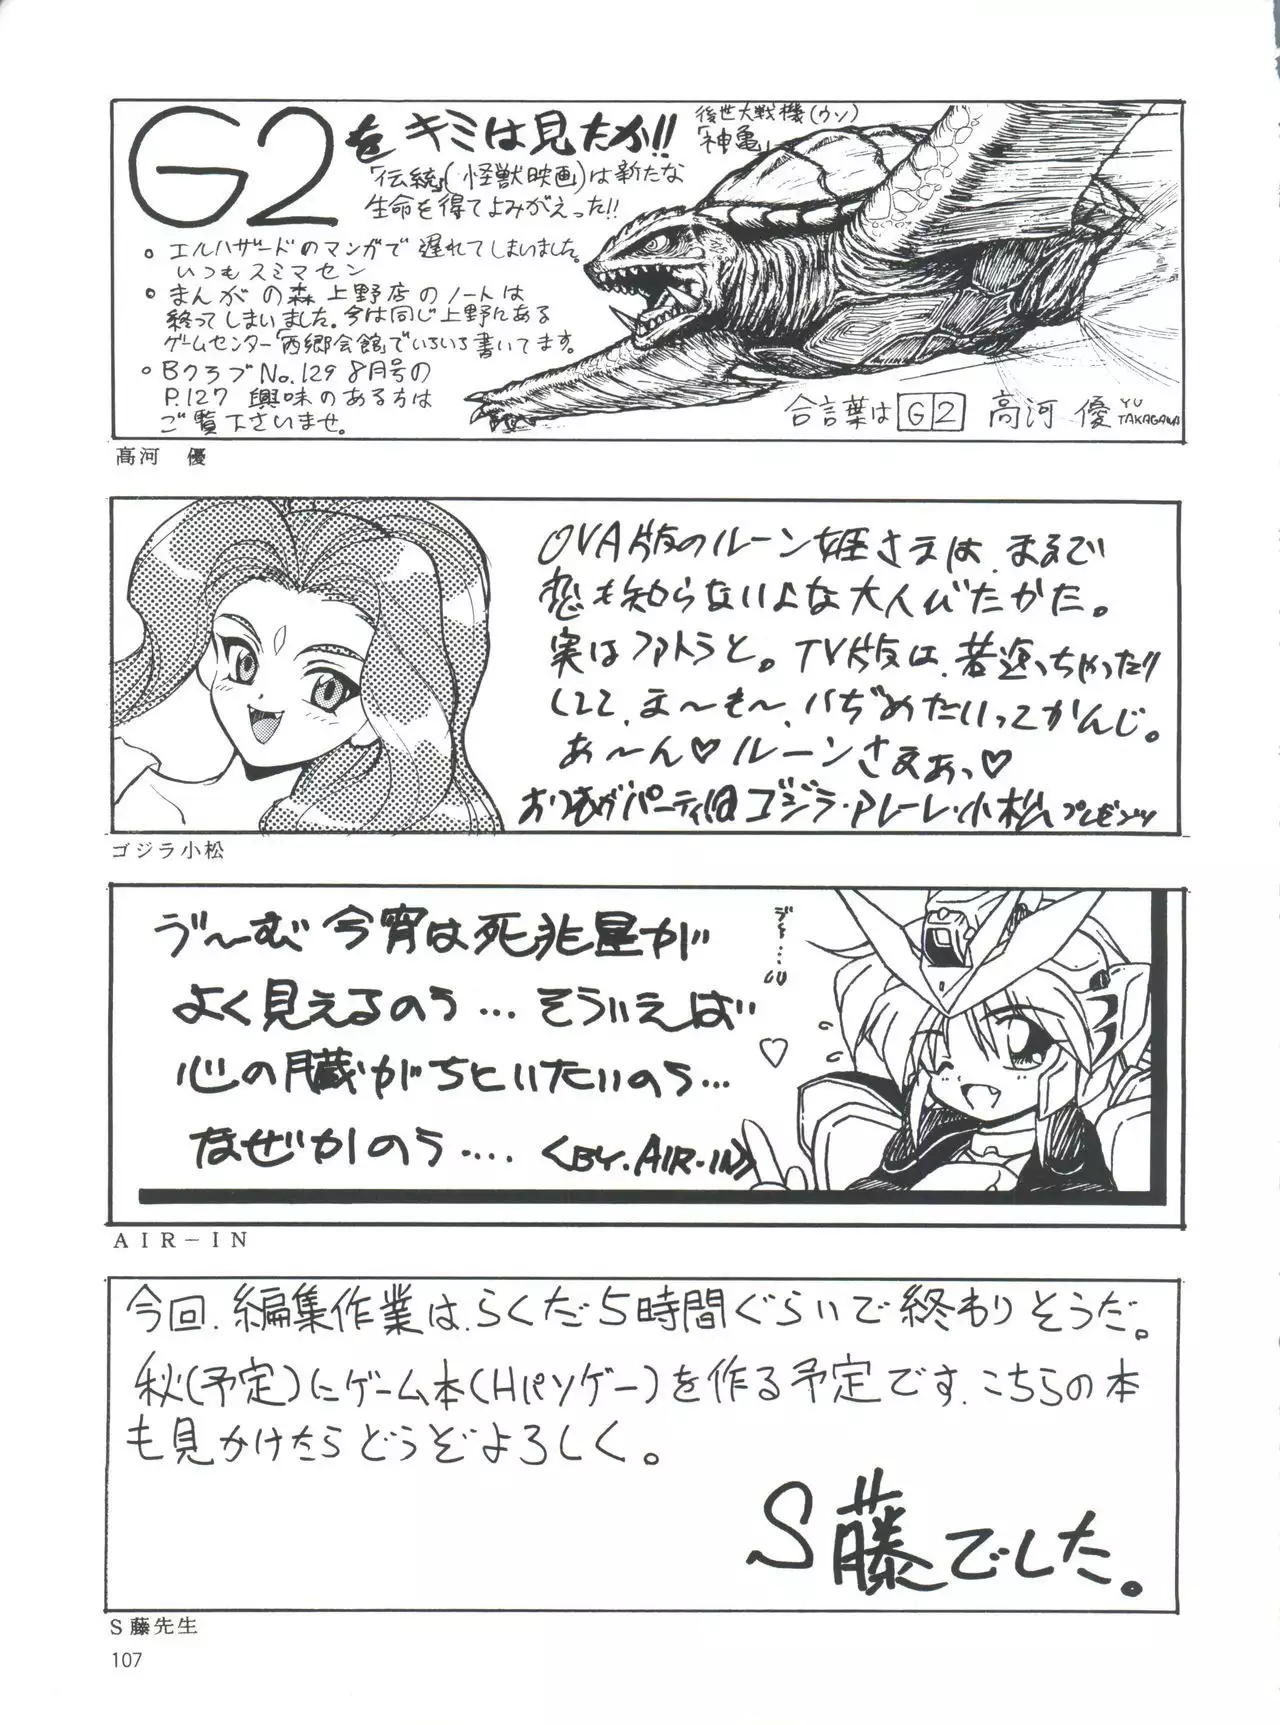 G2をキミは見たか!!
「伝統」(怪獣映画)は新たな
生命を得てよみがえった!!
後世大戦機(ウソ)
「神亀」
。エルハザードのマンガで遅れてしまいました。
いつもスミマセン
。まんがの森上野店のノートは
終ってしまいました。今は同じ上野にある
ゲームセンター「西郷会館」でいろいろ書いてます。
。BクラブNo.129 8月号の
P.127 興味のある方は
ご覧下さいませ。
合言葉は G2 高河 優 YU TAKAGAWA
高河 優
OVA版のルーン姫さまは、まるで
恋も知らないよな大人びたかた。
実はファトラと。TV版は、若返っちゃったり
してて、ま〜も〜、いぢめたいってかんじ。
あ〜ん♡ルーンさまぁっ♡
ゴジラ・Pルーレ・小松プレゼンツ
ゴジラ小松
ゔ〜む今宵は死兆星が
よく見えるのう…そういえば
心の臓がちといたいのう…
なぜかのう…. <BY.AIR-IN>
AIR-IN
今回、編集作業は、らくだ5時間ぐらいで終わりそうだ。
秋(予定)にゲーム本(Hパソゲー)を作る予定です、こちらの本
も見かけたらどうぞよろしく。
S藤でした。
S藤先生
107